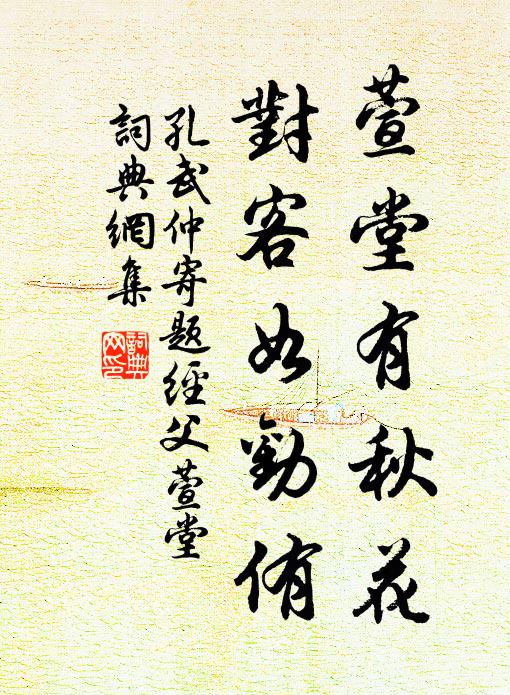 萱堂有秋花
對客如勸侑
孔武仲寄題經父萱堂
詞典網集
詞典網印